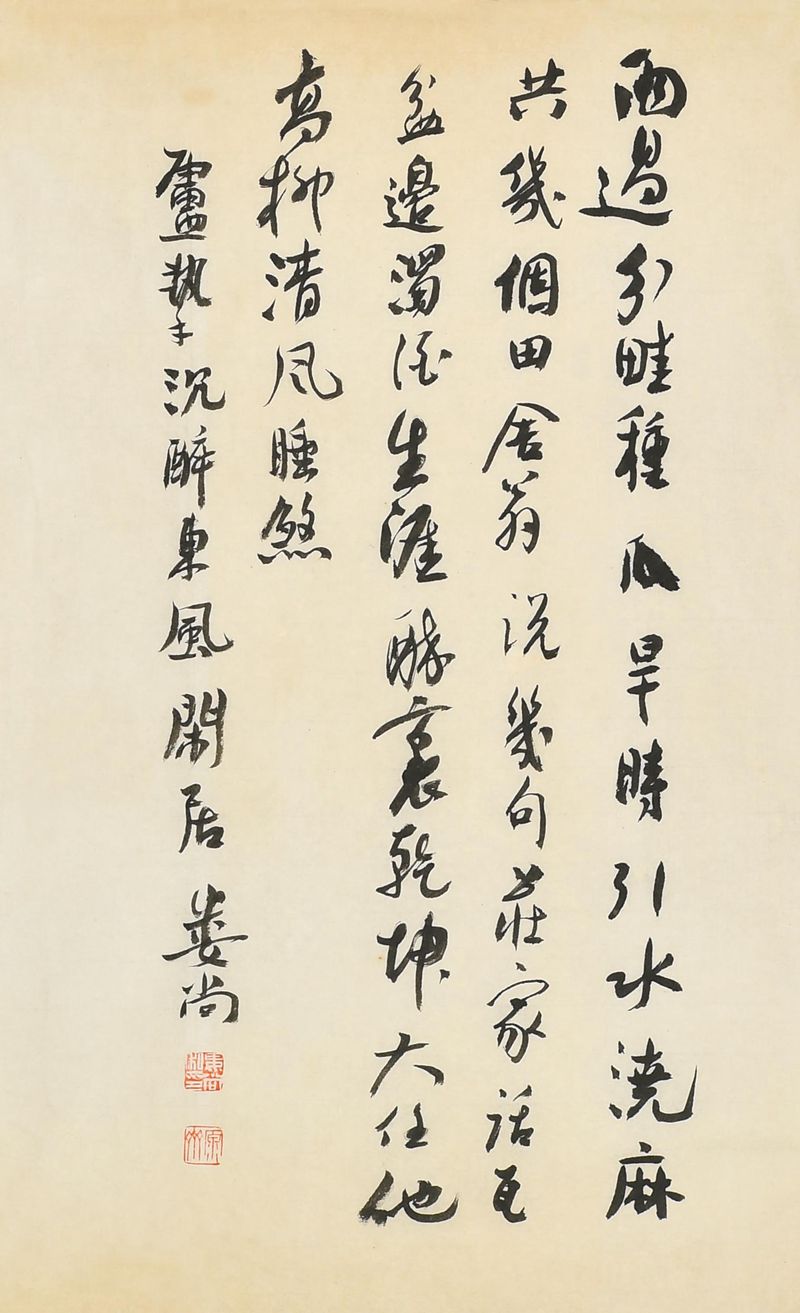 雨過分畦種瓜旱時引水澆麻
共幾個田舍翁説幾句莊家話瓦
盆邊濁酒生涯醉裏乾坤大任他
高柳清風睡煞
盧摯沉醉東風閑居 婁尚